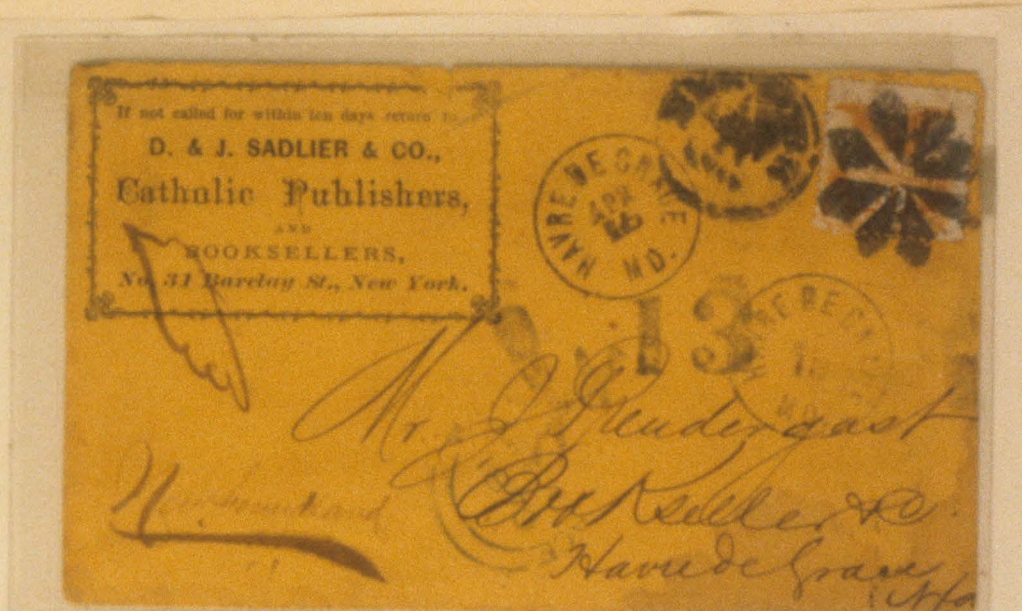 If not called for within ten days return to
D. & J. SADLIER & CO.,
Catholic Publishers,
AND
BOOKSELLERS,
No. 31 Barclay St., New York.
HAVRE DE GRACE
APR
MD.
13
HAVRE DE GRACE
MD.
Mr. J Prendergast
Bookseller &c.
Havre de Grace